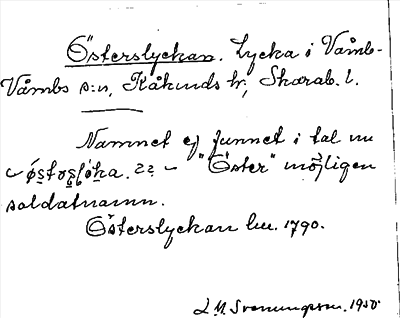 Österslyckan. Lycka i Våmb-
Våmbs s:n, Kåkinds hr, Skarab. l.
Namnet ej funnet i tal nu
"Öster" möjligen
soldatnamn.
Österslyckan lm. 1790.
Svenungsson. 1950.